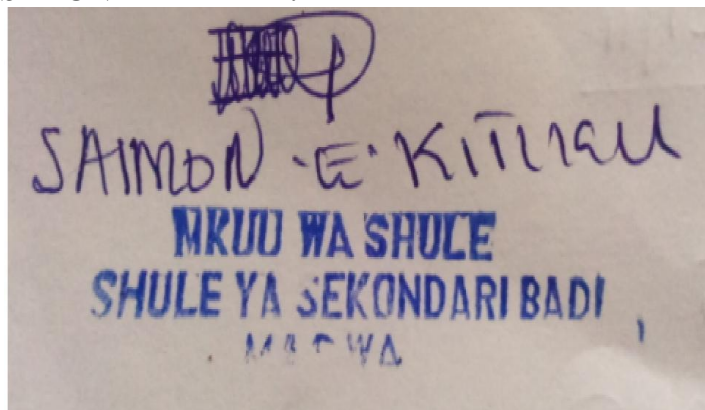 SAIMON .E. 
MKUU WA SHULE
SHULE YA SEKONDARI BADI